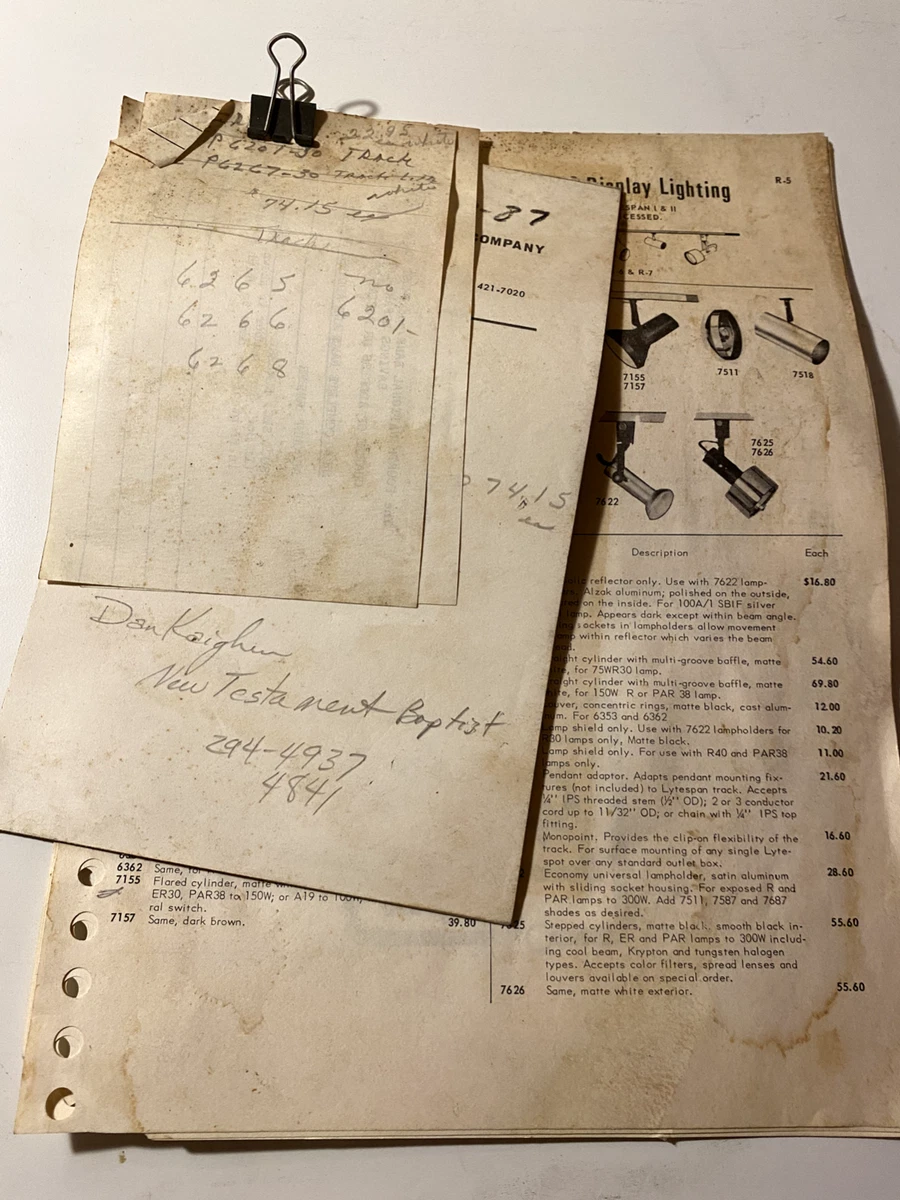 22.95
P6207-30 Track
P6267-30 Track
white
$74.15 ea
Track
6265 no.
6266 6201-
6268
-87
COMPANY
421-7020
74.15
ea
Dan
New Testament Baptist
294-4937
4841
Display Lighting
R-5
SPAN I & II
CESSED.
& R-7
7155
7157
7511
7518
7622
7625
7626
Description Each
reflector only. Use with 7622 lamp- $16.80
Alzak aluminum; polished on the outside,
on the inside. For 100A/1 SBIF silver
lamp. Appears dark except within beam angle.
sockets in lampholders allow movement
within reflector which varies the beam
cylinder with multi-groove baffle, matte 54.60
for 75WR30 lamp.
cylinder with multi-groove baffle, matte 69.80
for 150W R or PAR 38 lamp.
concentric rings, matte black, cast alum- 12.00
num. For 6353 and 6362
Lamp shield only. Use with 7622 lampholders for 10.20
R30 lamps only, Matte black.
Lamp shield only. For use with R40 and PAR38 11.00
lamps only.
Pendant adaptor. Adapts pendant mounting fix- 21.60
tures (not included) to Lytespan track. Accepts
¼" IPS threaded stem (½" OD); 2 or 3 conductor
cord up to 11/32" OD; or chain with ¼" IPS top
fitting.
Monopoint. Provides the clip-on flexibility of the 16.60
track. For surface mounting of any single Lyte-
spot over any standard outlet box.
Economy universal lampholder, satin aluminum 28.60
with sliding socket housing. For exposed R and
PAR lamps to 300W. Add 7511, 7587 and 7687
shades as desired.
Stepped cylinders, matte black, smooth black in- 55.60
terior, for R, ER and PAR lamps to 300W includ-
ing cool beam, Krypton and tungsten halogen
types. Accepts color filters, spread lenses and
louvers available on special order.
7626 Same, matte white exterior. 55.60
6362 Same,
7155 Flared cylinder, matte
ER30, PAR38 to 150W; or A19 to 100W,
ral switch.
7157 Same, dark brown. 39.80